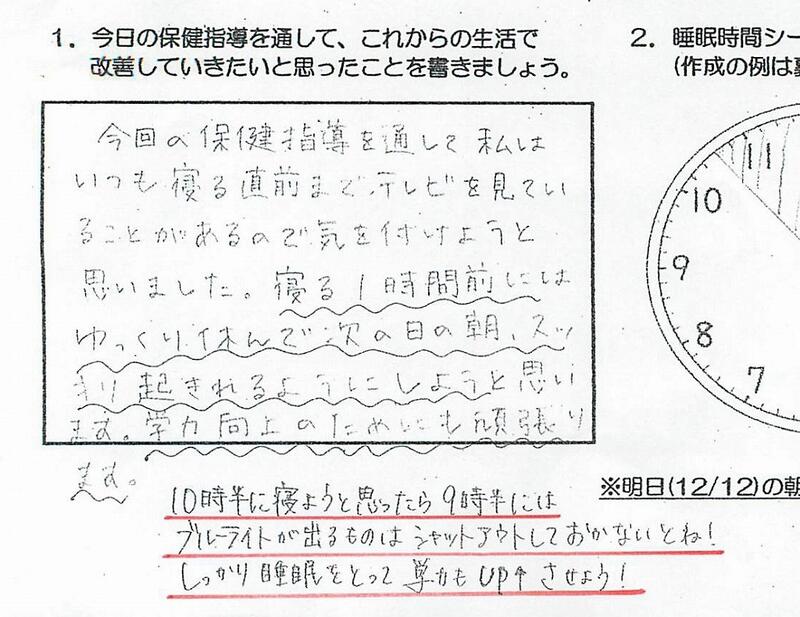 1. 今日の保健指導を通して、これからの生活で
改善していきたいと思ったことを書きましょう。
今回の保健指導を通して私は
いつも寝る直前までテレビを見てい
ることがあるので気を付けようと
思いました。寝る1時間前には
ゆっくり休んで次の日の朝、スッ
キリ起きれるようにしようと思い
ます。学力向上のためにも頑張り
ます。
10時半に寝ようと思ったら9時半には
ブルーライトが出るものはシャットアウトしておかないとね!
しっかり睡眠をとって学力もUP↑させよう!
2. 睡眠時間シー
(作成の例は裏
11
10
9
8
7
※明日(12/12)の朝